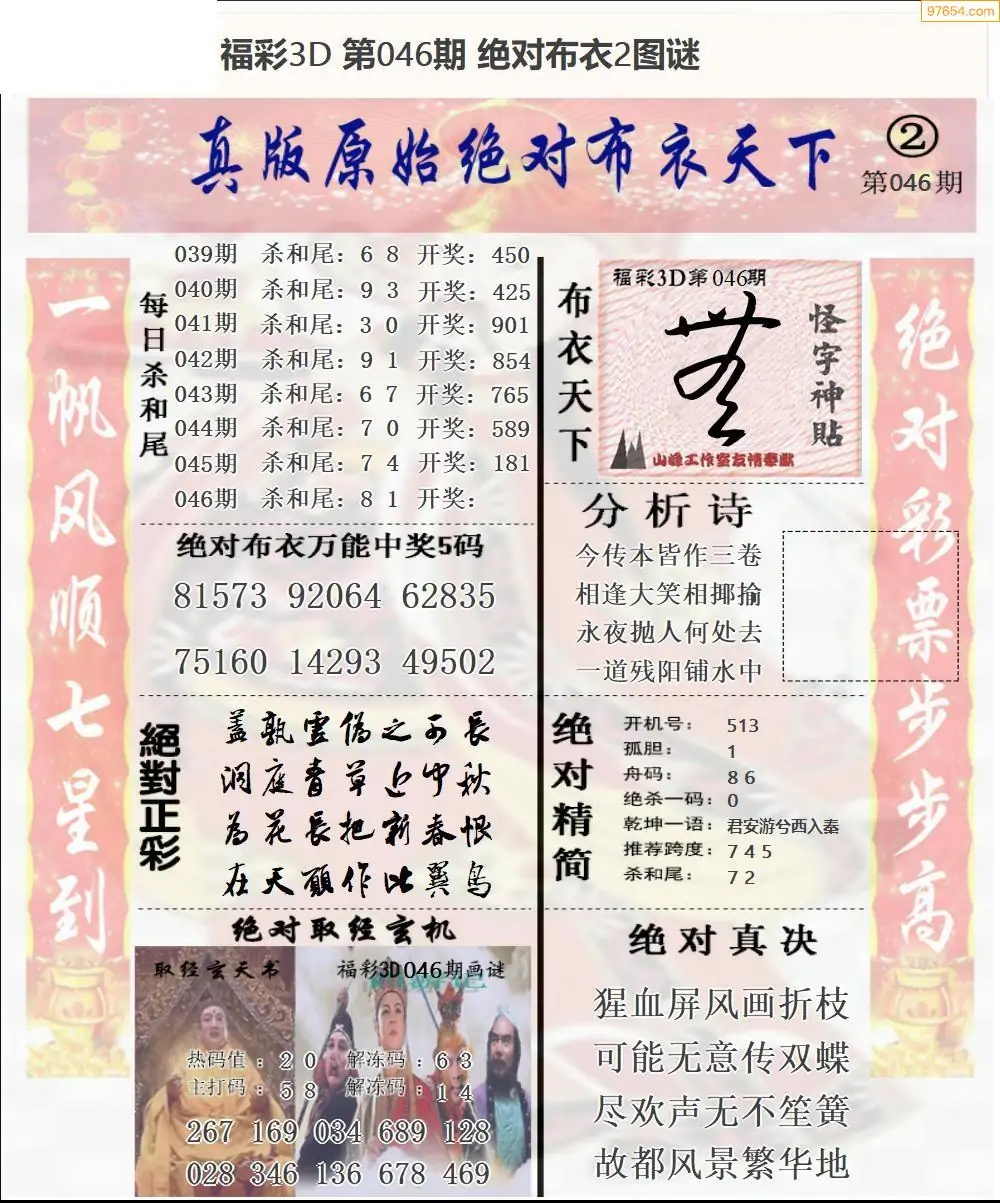 97654.com
福彩3D 第046期 绝对布衣2图谜
真版原始绝对布衣天下
②
第046期
一帆风顺七星到
每日杀和尾
039期 杀和尾：6 8 开奖：450
040期 杀和尾：9 3 开奖：425
041期 杀和尾：3 0 开奖：901
042期 杀和尾：9 1 开奖：854
043期 杀和尾：6 7 开奖：765
044期 杀和尾：7 0 开奖：589
045期 杀和尾：7 4 开奖：181
046期 杀和尾：8 1 开奖：
绝对布衣万能中奖5码
81573 92064 62835
75160 14293 49502
絕對正彩
盖孰云伪之可长
洞庭青草近中秋
为花长把新春恨
在天愿作比翼鸟
绝对取经玄机
取经玄天书
福彩3D046期画谜
热码值：2 0 解冻码：6 3
主打码：5 8 解冻码：1 4
267 169 034 689 128
028 346 136 678 469
布衣天下
福彩3D第046期
怪字神贴
山峰工作室友情奉献
分析诗
今传本皆作三卷
相逢大笑相揶揄
永夜抛人何处去
一道残阳铺水中
绝对精简
开机号：513
孤胆：1
舟码：8 6
绝杀一码：0
乾坤一语：君安游兮西入秦
推荐跨度：7 4 5
杀和尾：7 2
绝对真决
猩血屏风画折枝
可能无意传双蝶
尽欢声无不笙簧
故都风景繁华地
绝对彩票步步高